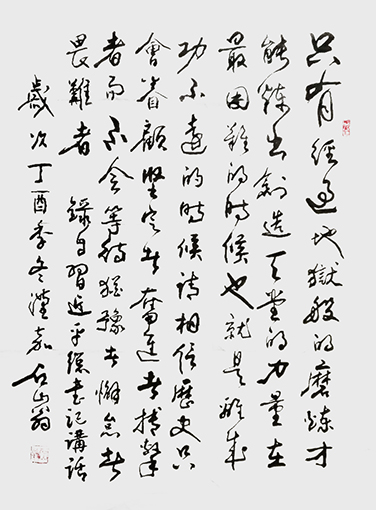 只有經過地獄般的磨煉才
能煉出創造天堂的力量在
最困難的時候也就是離成
功不遠的時候請相信歷史只
會眷顧堅定者奮進者搏擊
者而不會等待猶豫者懈怠者
畏難者 錄自習近平總書記講話
歲次丁酉季冬漢嘉石山翁